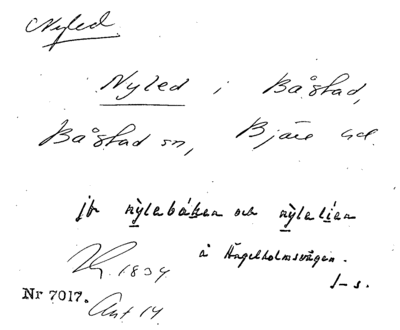 Nyled.
Nyled i Båstad,
Båstad sn, Bjäre hd.
jfr nylebáken och nylelien
å Ängelholmsvägen.
1834
Nr 7017.
Ant 14